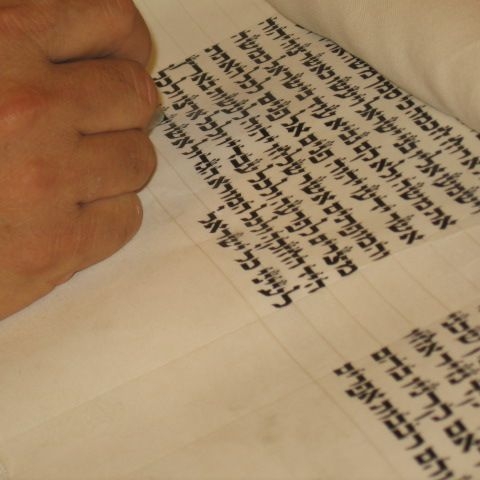 רוח חכמה כי סמך משה את
וישמעו אליו בני ישראל ויעשו כאשר צוה יהוה
את משה ולא קם נביא עוד בישראל כמשה
אשר ידעו יהוה פנים אל פנים לכל האתת
והמופתים אשר שלחו יהוה לעשות בארץ
מצרים לפרעה ולכל עבדיו ולכל ארצו ולכל
היד החזקה ולכל המורא הגדול אשר
לעיני כל ישראל
ראם קרניו בהם
והם רבבות אפרים